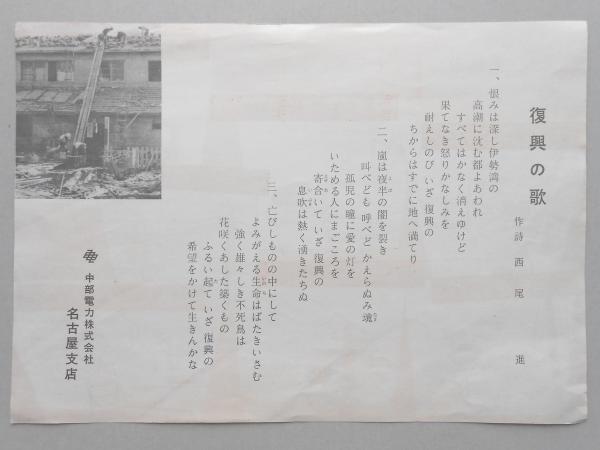 復興の歌
作詩 西尾 進
一、恨みは深し伊勢湾の
高潮に沈む都よあわれ
すべてはかなく消えゆけど
果てなき怒りかなしみを
耐えしのび いざ 復興の
ちからはすでに地へ満てり
二、嵐は夜半の闇を裂き
叫べども 呼べど かえらぬみ魂
孤児の瞳に愛の灯を
いためる人にまごころを
寄合いて いざ 復興の
息吹は熱く湧きたちぬ
三、亡びしものの中にして
よみがえる生命はばたきいさむ
強く雄々しき不死鳥は
花咲くあした築くもの
ふるい起て いざ 復興の
希望をかけて生きんかな
中部電力株式会社
名古屋支店